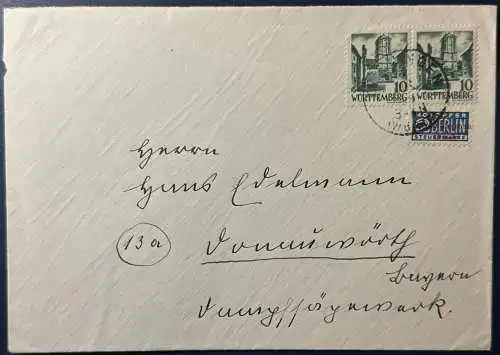 10 10
WÜRTTEMBERG WÜRTTEMBERG
NOTOPFER
2 BERLIN
STEUERMARKE
Herrn
Hans Edelmann
13a
Donauwörth
Bayern
Dampfsägewerk.